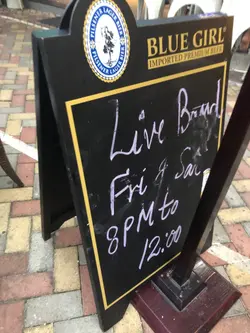 BLUE GIRL
IMPORTED PREMIUM BEER
Live Band
Fri & Sat
8PM to
12:00